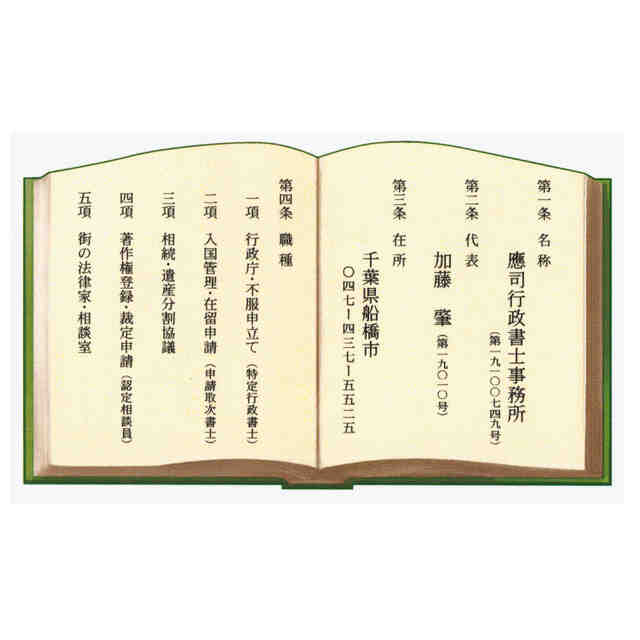 第一条 名称
應司行政書士事務所
(第一九一〇〇七四九号)
第二条 代表
加藤 肇(第一九〇一〇号)
第三条 在所
千葉県船橋市
〇四七ー四三七ー五五二五
第四条 職種
一項 行政庁・不服申立て(特定行政書士)
二項 入国管理・在留申請(申請取次書士)
三項 相続・遺産分割協議
四項 著作権登録・裁定申請(認定相談員)
五項 街の法律家・相談室